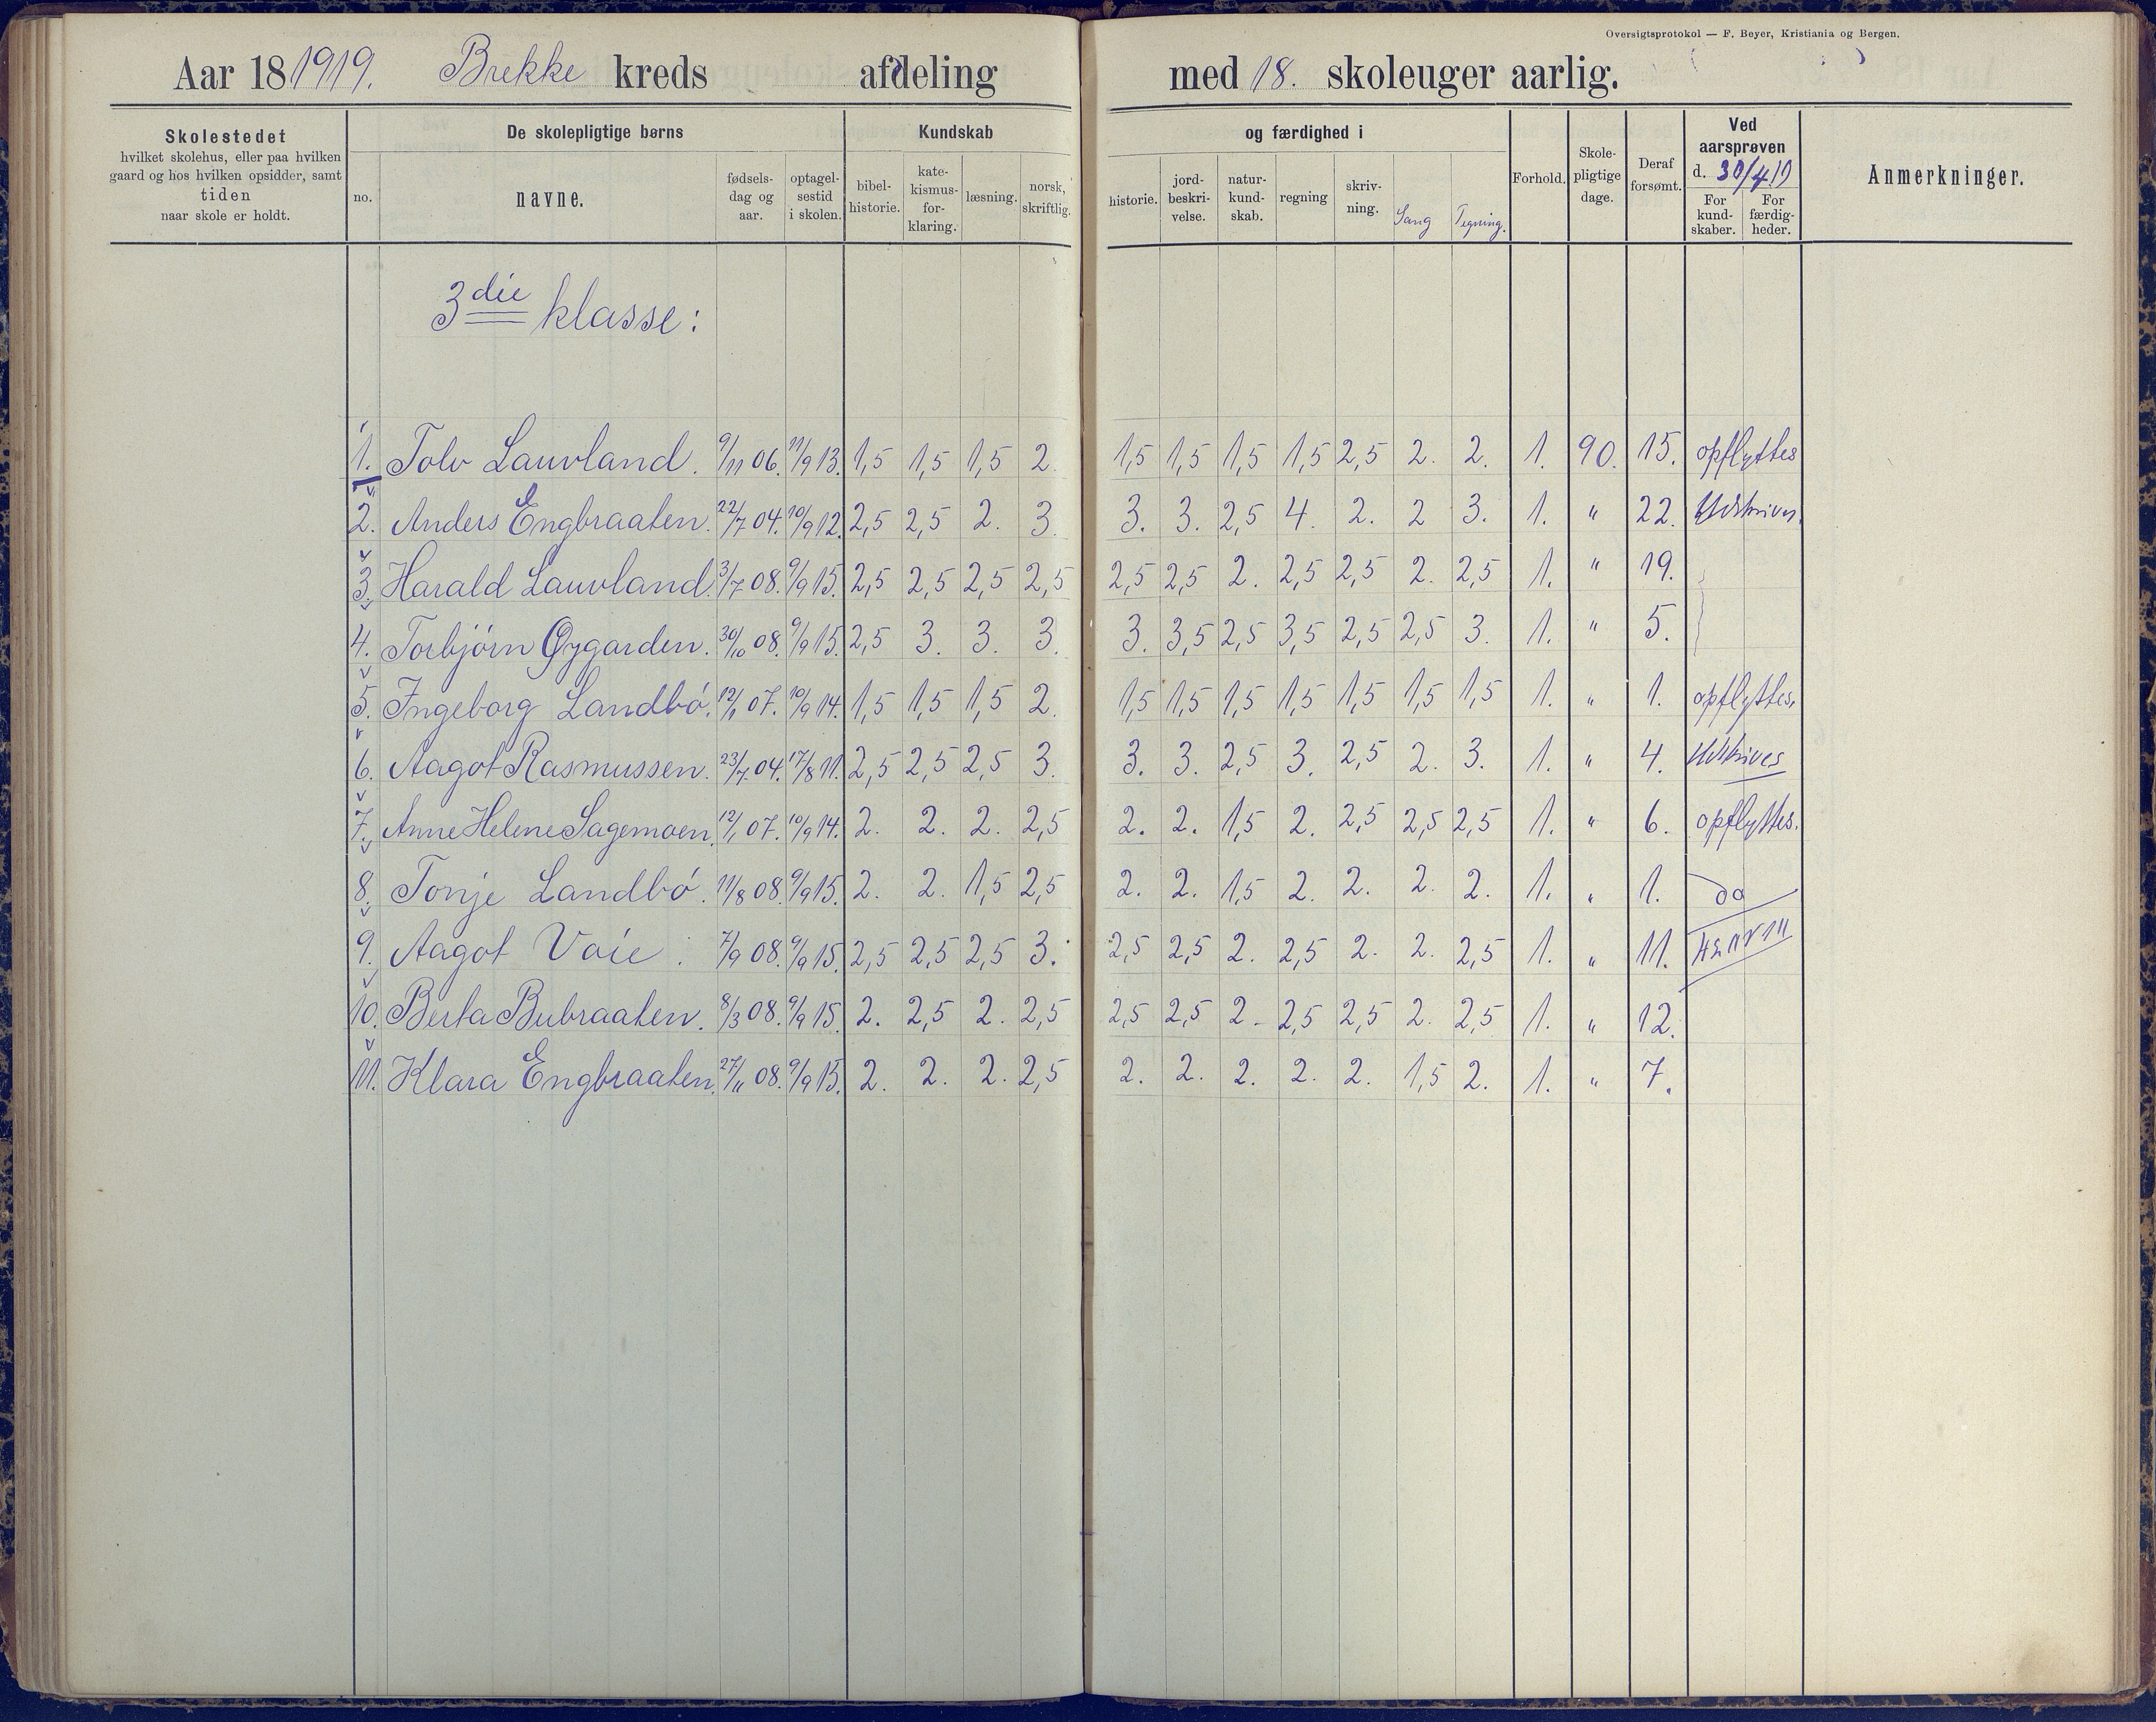 Oversigtsprotokol — F. Beyer, Kristiania og Bergen.
Aar 18 1919. Brekke kreds afdeling med 18. skoleuger aarlig.
Skolestedet
hvilket skolehus, eller paa hvilken
gaard og hos hvilken opsidder, samt
tiden
naar skole er holdt.
De skolepligtige børns
no.
navne.
fødsels-
dag og
aar.
optagel-
sestid
i skolen.
Kundskab
bibel-
historie.
kate-
kismus-
for-
klaring.
læsning.
norsk,
skriftlig.
og færdighed i
historie.
jord-
beskri-
velse.
natur-
kund-
skab.
regning
skriv-
ning.
Sang
Tegning.
Forhold.
Skole-
pligtige
dage.
Deraf
forsømt.
Ved
aarsprøven
d. 30/4 19
For
kund-
skaber.
For
færdig-
heder.
Anmerkninger.
3die klasse:
1. Tolv Lauvland. 9/11 06. 11/9 13. 1,5 1,5 1,5 2. 1,5 1,5 1,5 1,5 2,5 2. 2. 1. 90. 15. opflyttes
2. Anders Engbraaten. 22/7 04. 10/9 12. 2,5 2,5 2. 3. 3. 3. 2,5 4. 2. 2 3. 1. " 22. Udskrives.
3. Harald Lauvland. 3/7 08. 9/9 15. 2,5 2,5 2,5 2,5 2,5 2,5 2. 2,5 2,5 2. 2,5 1. " 19.
4. Torbjörn Øygarden. 30/10 08. 9/9 15. 2,5 3. 3. 3. 3. 3,5 2,5 3,5 2,5 2,5 3. 1. " 5.
5. Ingeborg Landbö. 12/1 07. 10/9 14. 1,5 1,5 1,5 2. 1,5 1,5 1,5 1,5 1,5 1,5 1,5 1. " 1. opflyttes.
6. Aagot Rasmussen. 23/7 04. 17/8 11. 2,5 2,5 2,5 3. 3. 3. 2,5 3. 2,5 2. 3. 1. " 4. Udskrives
7. Anne Helene Sagemoen. 12/1 07. 10/9 14. 2. 2. 2. 2,5 2. 2. 1,5 2. 2,5 2,5 2,5 1. " 6. opflyttes.
8. Tonje Landbö. 11/8 08. 9/9 15. 2. 2. 1,5 2,5 2. 2. 1,5 2. 2. 2. 2. 1. " 1. do
9. Aagot Vaie. 7/9 08. 9/9 15. 2,5 2,5 2,5 3. 2,5 2,5 2. 2,5 2. 2. 2,5 1. " 11.
10. Berta Bubraaten. 8/3 08. 9/9 15. 2. 2,5 2. 2,5 2,5 2,5 2. 2,5 2,5 2. 2,5 1. " 12.
11. Klara Engbraaten. 27/11 08. 9/9 15. 2. 2. 2. 2,5 2. 2. 2. 2. 2. 1,5 2. 1. " 7.